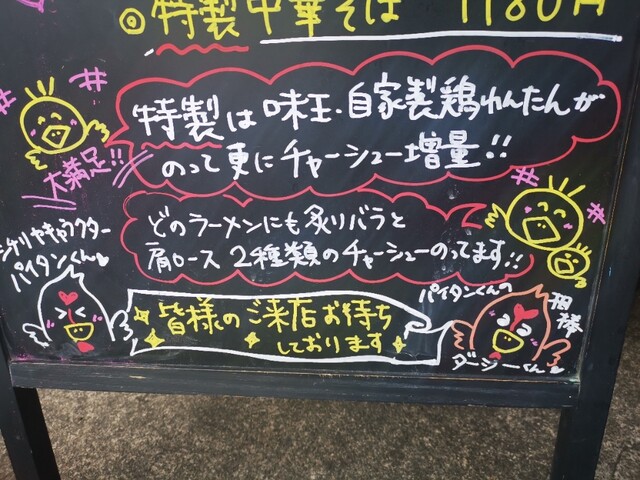 ◎特製中華そば 1180円
特製は味玉・自家製鶏わんたんが
のって更にチャーシュー増量!!
大満足!!
どのラーメンにも炙りバラと
肩ロース2種類のチャーシューのってます!!
キャラクター
パイタンくん
皆様のご来店お待ち
しております
パイタンくんの
相棒
ダージーくん